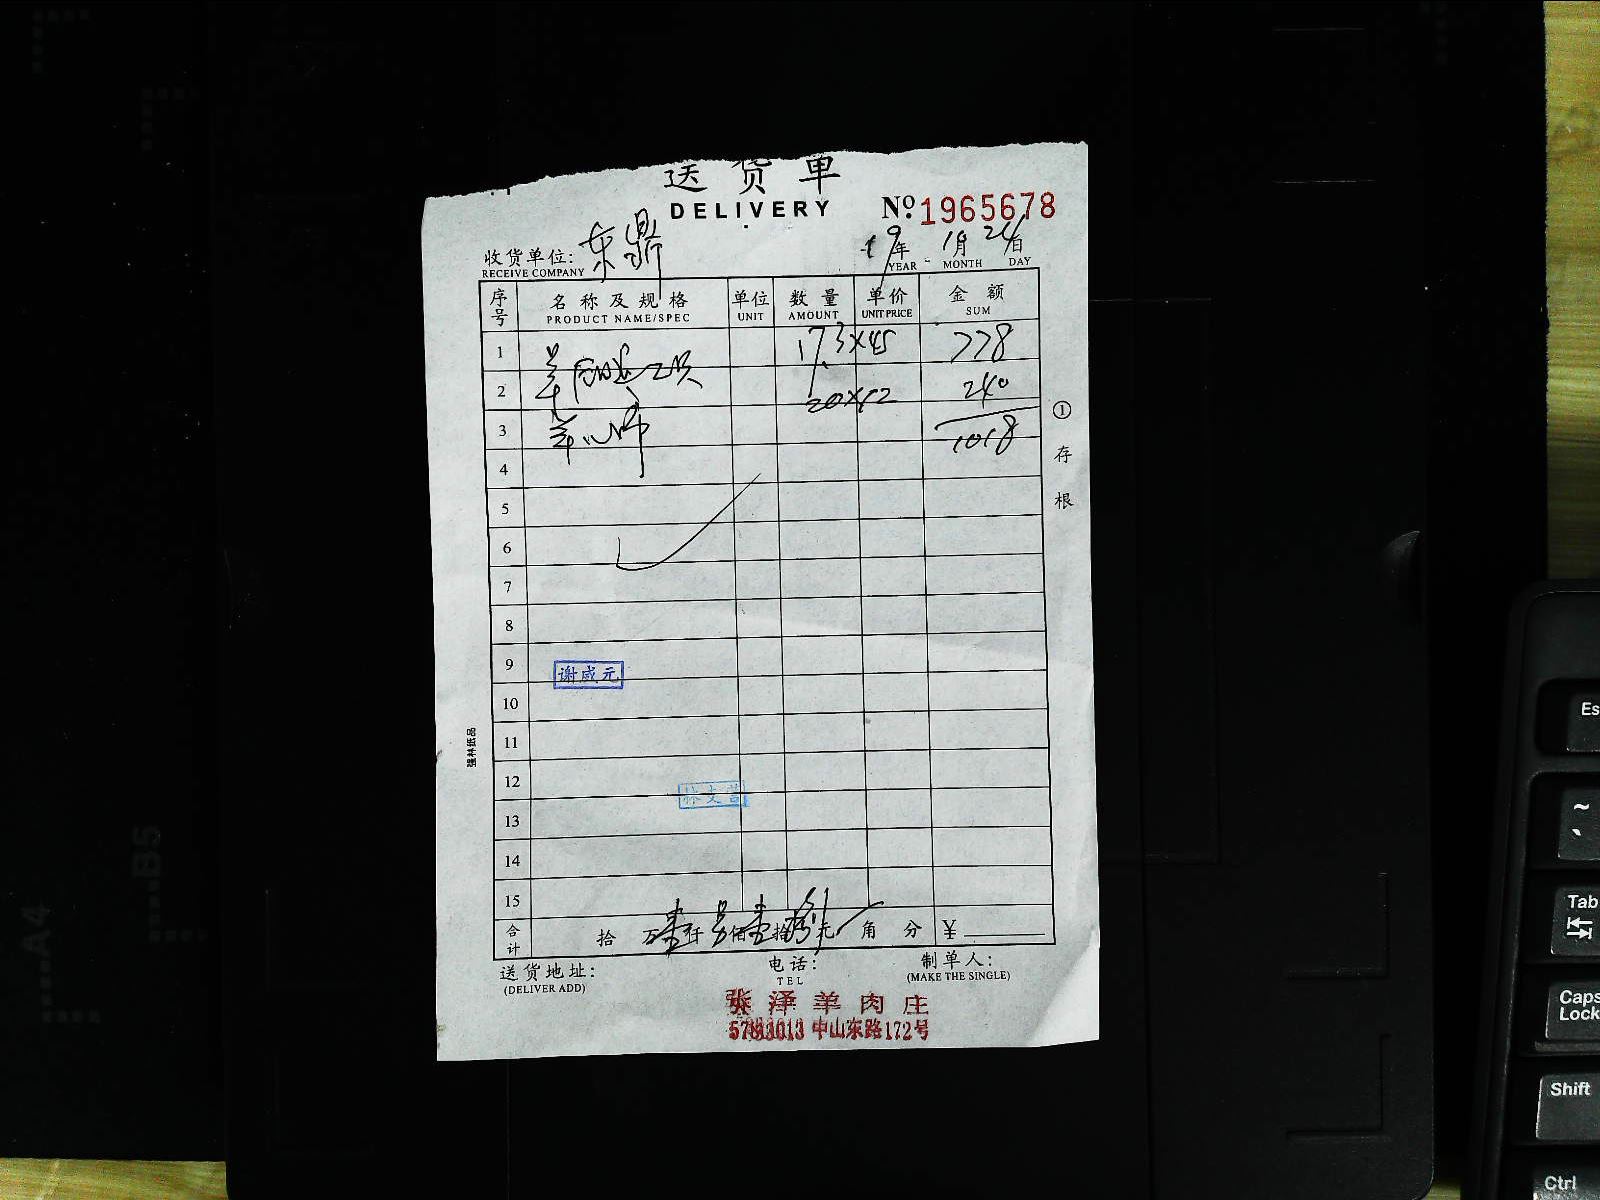 送货单
DELIVERY
Nº 1965678
收货单位: 东鼎
RECEIVE COMPANY
19年 1月 24日
YEAR MONTH DAY
序号 名称及规格 单位 数量 单价 金额
PRODUCT NAME/SPEC UNIT AMOUNT UNIT PRICE SUM
1 17.3×45 778
2 羊 20×12 240
3 羊 1018
4
5
6
7
8
9
谢成元
10
11
12
林文
13
14
15
合计 拾 万 壹仟 另佰 壹拾 捌元 角 分 ¥
① 存根
强林纸品
送货地址: 电话: 制单人:
(DELIVER ADD) TEL (MAKE THE SINGLE)
张泽羊肉庄
中山东路172号
Es
~
`
Tab
Caps
Lock
Shift
Ctrl
A4
B5